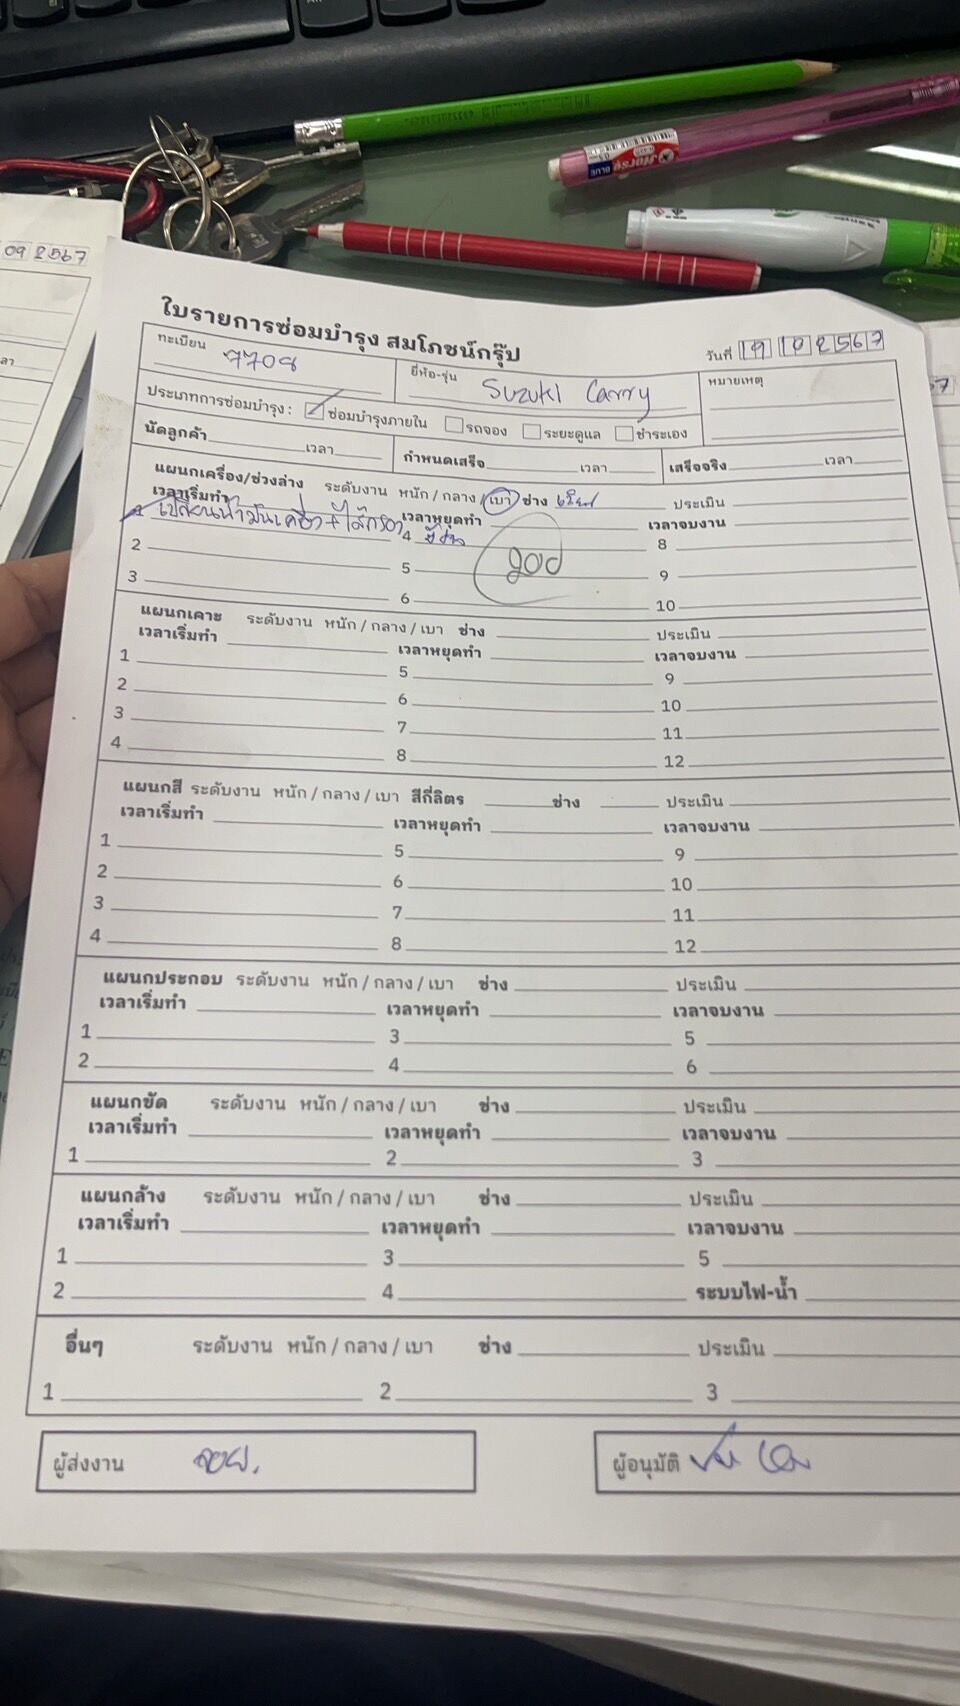 09 2567
ใบรายการซ่อมบำรุง สมโภชน์กรุ๊ป
วันที่ 19 10 2567
ทะเบียน 7708 ยี่ห้อ-รุ่น Suzuki Carry หมายเหตุ
ประเภทการซ่อมบำรุง : ซ่อมบำรุงภายใน รถจอง ระยะดูแล ชำระเอง
นัดลูกค้า เวลา กำหนดเสร็จ เวลา เสร็จจริง เวลา
แผนกเครื่อง/ช่วงล่าง ระดับงาน หนัก / กลาง / เบา ช่าง ประเมิน
เวลาเริ่มทำ เวลาหยุดทำ เวลาจบงาน
1 เปลี่ยนน้ำมันเครื่อง + ไส้กรอง 4 8
2 5 9
3 6 10
แผนกเคาะ ระดับงาน หนัก / กลาง / เบา ช่าง ประเมิน
เวลาเริ่มทำ เวลาหยุดทำ เวลาจบงาน
1 5 9
2 6 10
3 7 11
4 8 12
แผนกสี ระดับงาน หนัก / กลาง / เบา สีกี่ลิตร ช่าง ประเมิน
เวลาเริ่มทำ เวลาหยุดทำ เวลาจบงาน
1 5 9
2 6 10
3 7 11
4 8 12
แผนกประกอบ ระดับงาน หนัก / กลาง / เบา ช่าง ประเมิน
เวลาเริ่มทำ เวลาหยุดทำ เวลาจบงาน
1 3 5
2 4 6
แผนกขัด ระดับงาน หนัก / กลาง / เบา ช่าง ประเมิน
เวลาเริ่มทำ เวลาหยุดทำ เวลาจบงาน
1 2 3
แผนกล้าง ระดับงาน หนัก / กลาง / เบา ช่าง ประเมิน
เวลาเริ่มทำ เวลาหยุดทำ เวลาจบงาน
1 3 5
2 4 ระบบไฟ-น้ำ
อื่นๆ ระดับงาน หนัก / กลาง / เบา ช่าง ประเมิน
1 2 3
ผู้ส่งงาน ผู้อนุมัติ